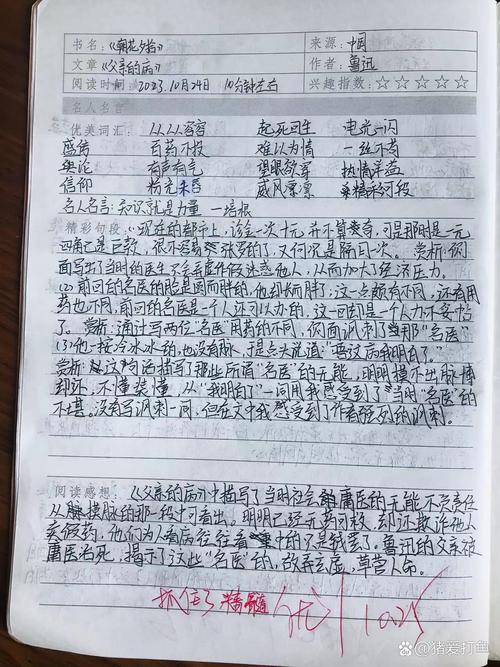 书名：《朝花夕拾》 来源：中国
文章《父亲的病》 作者：鲁迅
阅读时间：2023.10月24日 10分钟左右 兴趣指数：☆☆☆☆☆
名人名言
优美词汇：从从容容 起死回生 电光一闪
盛传 百药不投 难以为情 一丝不苟
舆论 有声有气 望眼欲穿 热情洋溢
信仰 威风凛凛
名人名言：知识就是力量 一培根
精彩句段：⑴现在的都市上，诊金一次十元并不算奇，可是那时是一元
四角已是巨款，很不容易张罗的了，又何况是隔日一次。 赏析：侧
面写出了当时的医生从而加大了经济压力。
⑵前回的名医的脸是圆而胖的，他却长而胖了，这一点颇有不同，还有用
药也不同，前回的名医是一个人还可以办的，这一回却是一个人办不妥帖
了。 赏析：通过写两位"名医"用药的不同，侧面讽刺了那"名医"
⑶他一按冷冰冰的，也没有脉，于是点头说道："唔这病我明白了。"
赏析：这句话描写了那些所谓"名医"的无能，明明摸不出脉搏
却还不懂装懂，从"我明白了"一词用我感受到了当时"名医"的
不堪。没有写讽刺一词，但在文中我感受到了作者强烈的讽刺。
阅读感想：《父亲的病》中描写了当时社会庸医的无能不负责任
从摸脉的那一段中可看出。明明已经无药可移，却还欺诈他人
卖假药，他们为人看病往往看中的只是钱罢了。鲁迅的父亲被
庸医治死，揭示了这些"名医"的，故弄玄虚，草菅人命。
抓住了精髓 优 10.25
百家号/猪爱打鱼